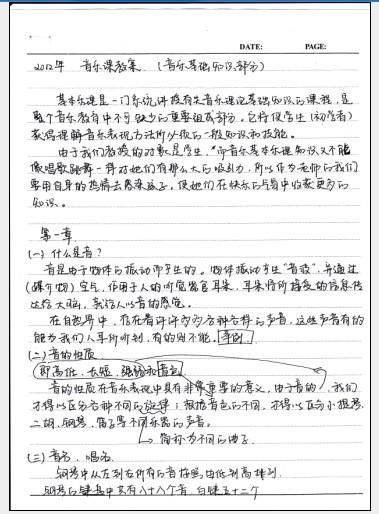 DATE: PAGE:
2012年 音乐课教案.（音乐基础知识部分）
基本乐理是一门系统讲授有关音乐理论基础知识的课程，是
整个音乐教育中不可缺少的重要组成部分，它将使学生（初学者）
获得理解音乐表现方法所必须的一般知识和技能。
由于我们教授的对象是学生，而音乐基本乐理知识又不能
像唱歌跳舞一样对他们有那么大的吸引力，所以作为老师的我们
要用自身的热情去感染孩子，使他们在快乐的学习中收获更多的
知识。
第一章
(一) 什么是音？
音是由于物体的振动而产生的。物体振动产生"音波"，并通过
(媒介物) 空气，作用于人的听觉器官耳朵，耳朵将所接受的信息传
达给大脑，就给人以音的感觉。
在自然界中，存在着许许多多各种各样的声音，这些声音有的
能为我们人耳所听到，有的则不能。举例
(二) 音的性质
即高低、长短、强弱和音色
音的性质在音乐表现中具有非常重要的意义，由于音的，我们
才得以区分各种不同的旋律；根据音色的不同，才得以区分小提琴、
二胡、钢琴、笛子等不同乐器的声音。
简称为不同的曲子
(三) 音名、唱名.
钢琴中从左到右所有的音按照由低到高排列.
钢琴的键盘中共有八十八个音，白键五十二个